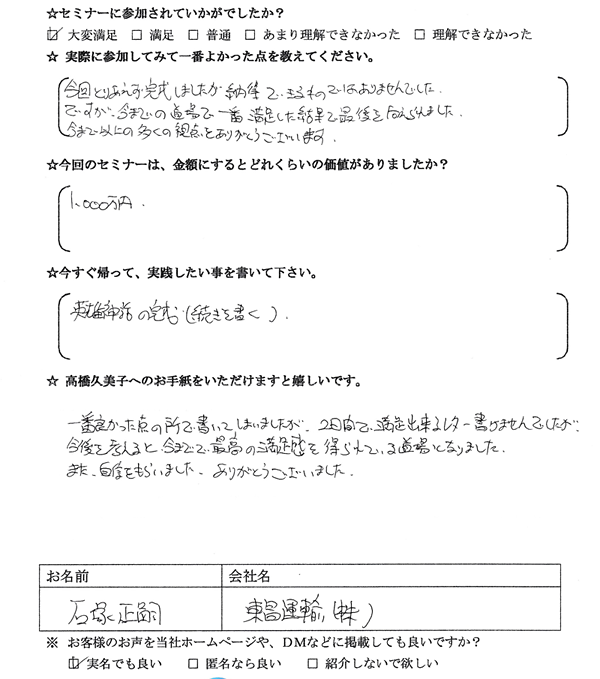 ☆セミナーに参加されていかがでしたか?
☑ 大変満足 □ 満足 □ 普通 □ あまり理解できなかった □ 理解できなかった
☆ 実際に参加してみて一番よかった点を教えてください。
今回とりあえず完成しましたが納得できるものではありませんでした。
ですが、今までの道場で一番満足した結果で最後を迎えられました。
今まで以上の多くの視点をありがとうございます。
☆今回のセミナーは、金額にするとどれくらいの価値がありましたか?
1,000万円.
☆今すぐ帰って、実践したい事を書いて下さい。
英雄神話の完成(続きを書く)。
☆ 高橋久美子へのお手紙をいただけますと嬉しいです。
一番良かった点の所で書いてしまいましたが、2日間で満足出来るレター書けませんでしたが、
今後を考えると今までで最高の満足感を得られている道場となりました。
また、自信をもらいました、ありがとうございました。
お名前 会社名
石塚正嗣 東昌運輸(株)
※ お客様のお声を当社ホームページや、DMなどに掲載しても良いですか?
☑ 実名でも良い □ 匿名なら良い □ 紹介しないで欲しい